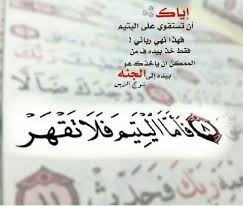 إياك
أن تستقوي على اليتيم
فهذا نهي رباني !
فقط خذ بيده فـ من
الممكن ان يأخذك هو
بيده إلى الجنه
فأما اليتيم فلا تقهر